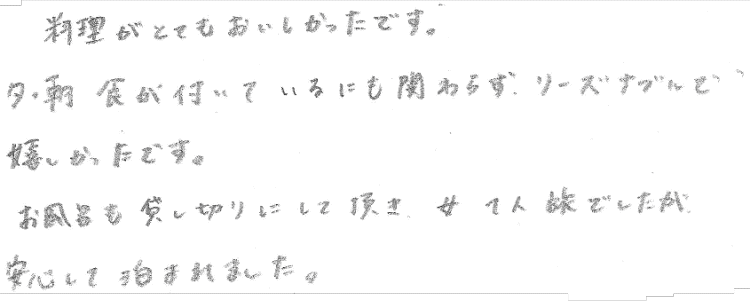 料理がとてもおいしかったです。
夕・朝食が付いているにも関わらず、リーズナブルで
嬉しかったです。
お風呂も貸し切りにして頂き、女1人旅でしたが、
安心して泊まれました。